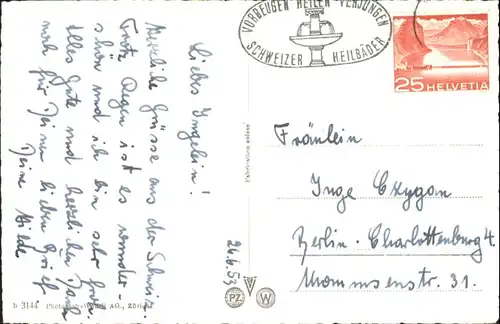 VORBEUGEN HEILEN VERJÜNGEN
SCHWEIZER HEILBÄDER
25 HELVETIA
Liebes Ingelein!
Herzliche Grüsse aus der Schweiz.
Trotz Regen ist es wunder-
schön und ich bin sehr froh.
Alles Gute und herzlichen Dank
noch für Deinen lieben Brief
Deine Hilde
24.6.53
Fräulein
Inge Czygan
Berlin-Charlottenburg 4
Mommsenstr. 31.
b 3144 AG., Zürich
PZ W